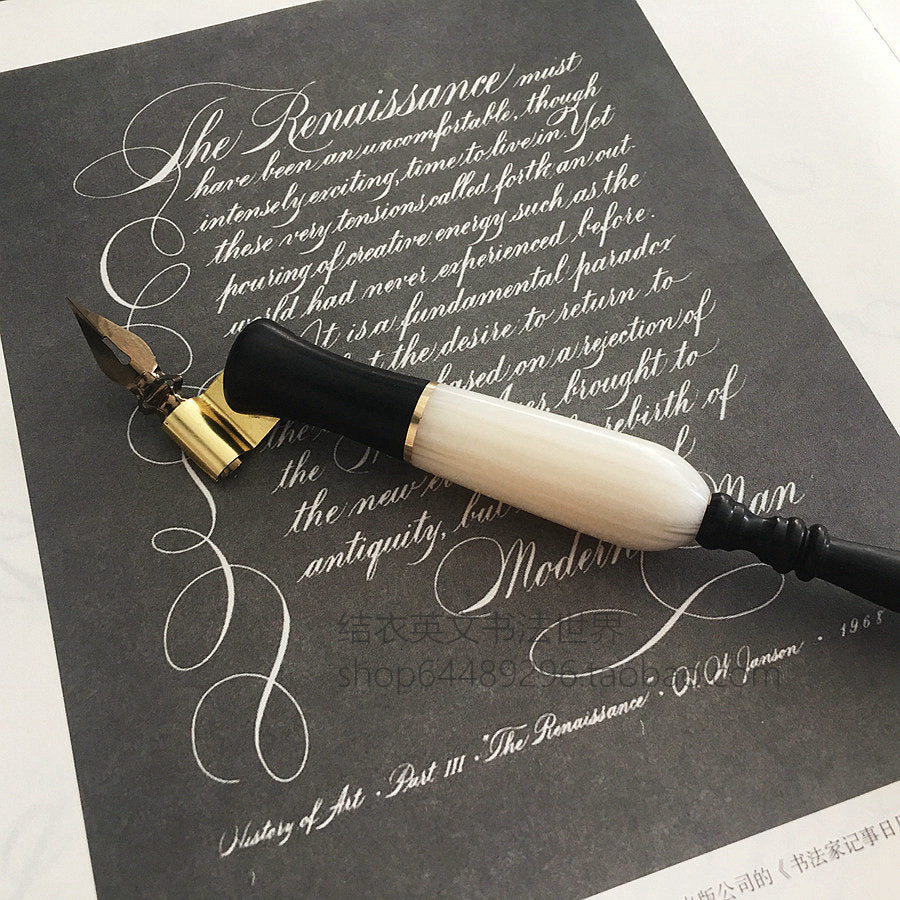 The Renaissance must
have been an uncomfortable, though
intensely exciting, time to live in. Yet
these very tensions called forth an out-
pouring of creative energy such as the
world had never experienced before.
It is a fundamental paradox
the desire to return to
based on a rejection of
brought to
the rebirth of
the
the new
antiquity, but of
Modern Man
结衣英文书法世界
shop64489296.taobao.com
History of Art · Part III · "The Renaissance" · H. W. Janson · 1968
出版公司的《书法家记事日